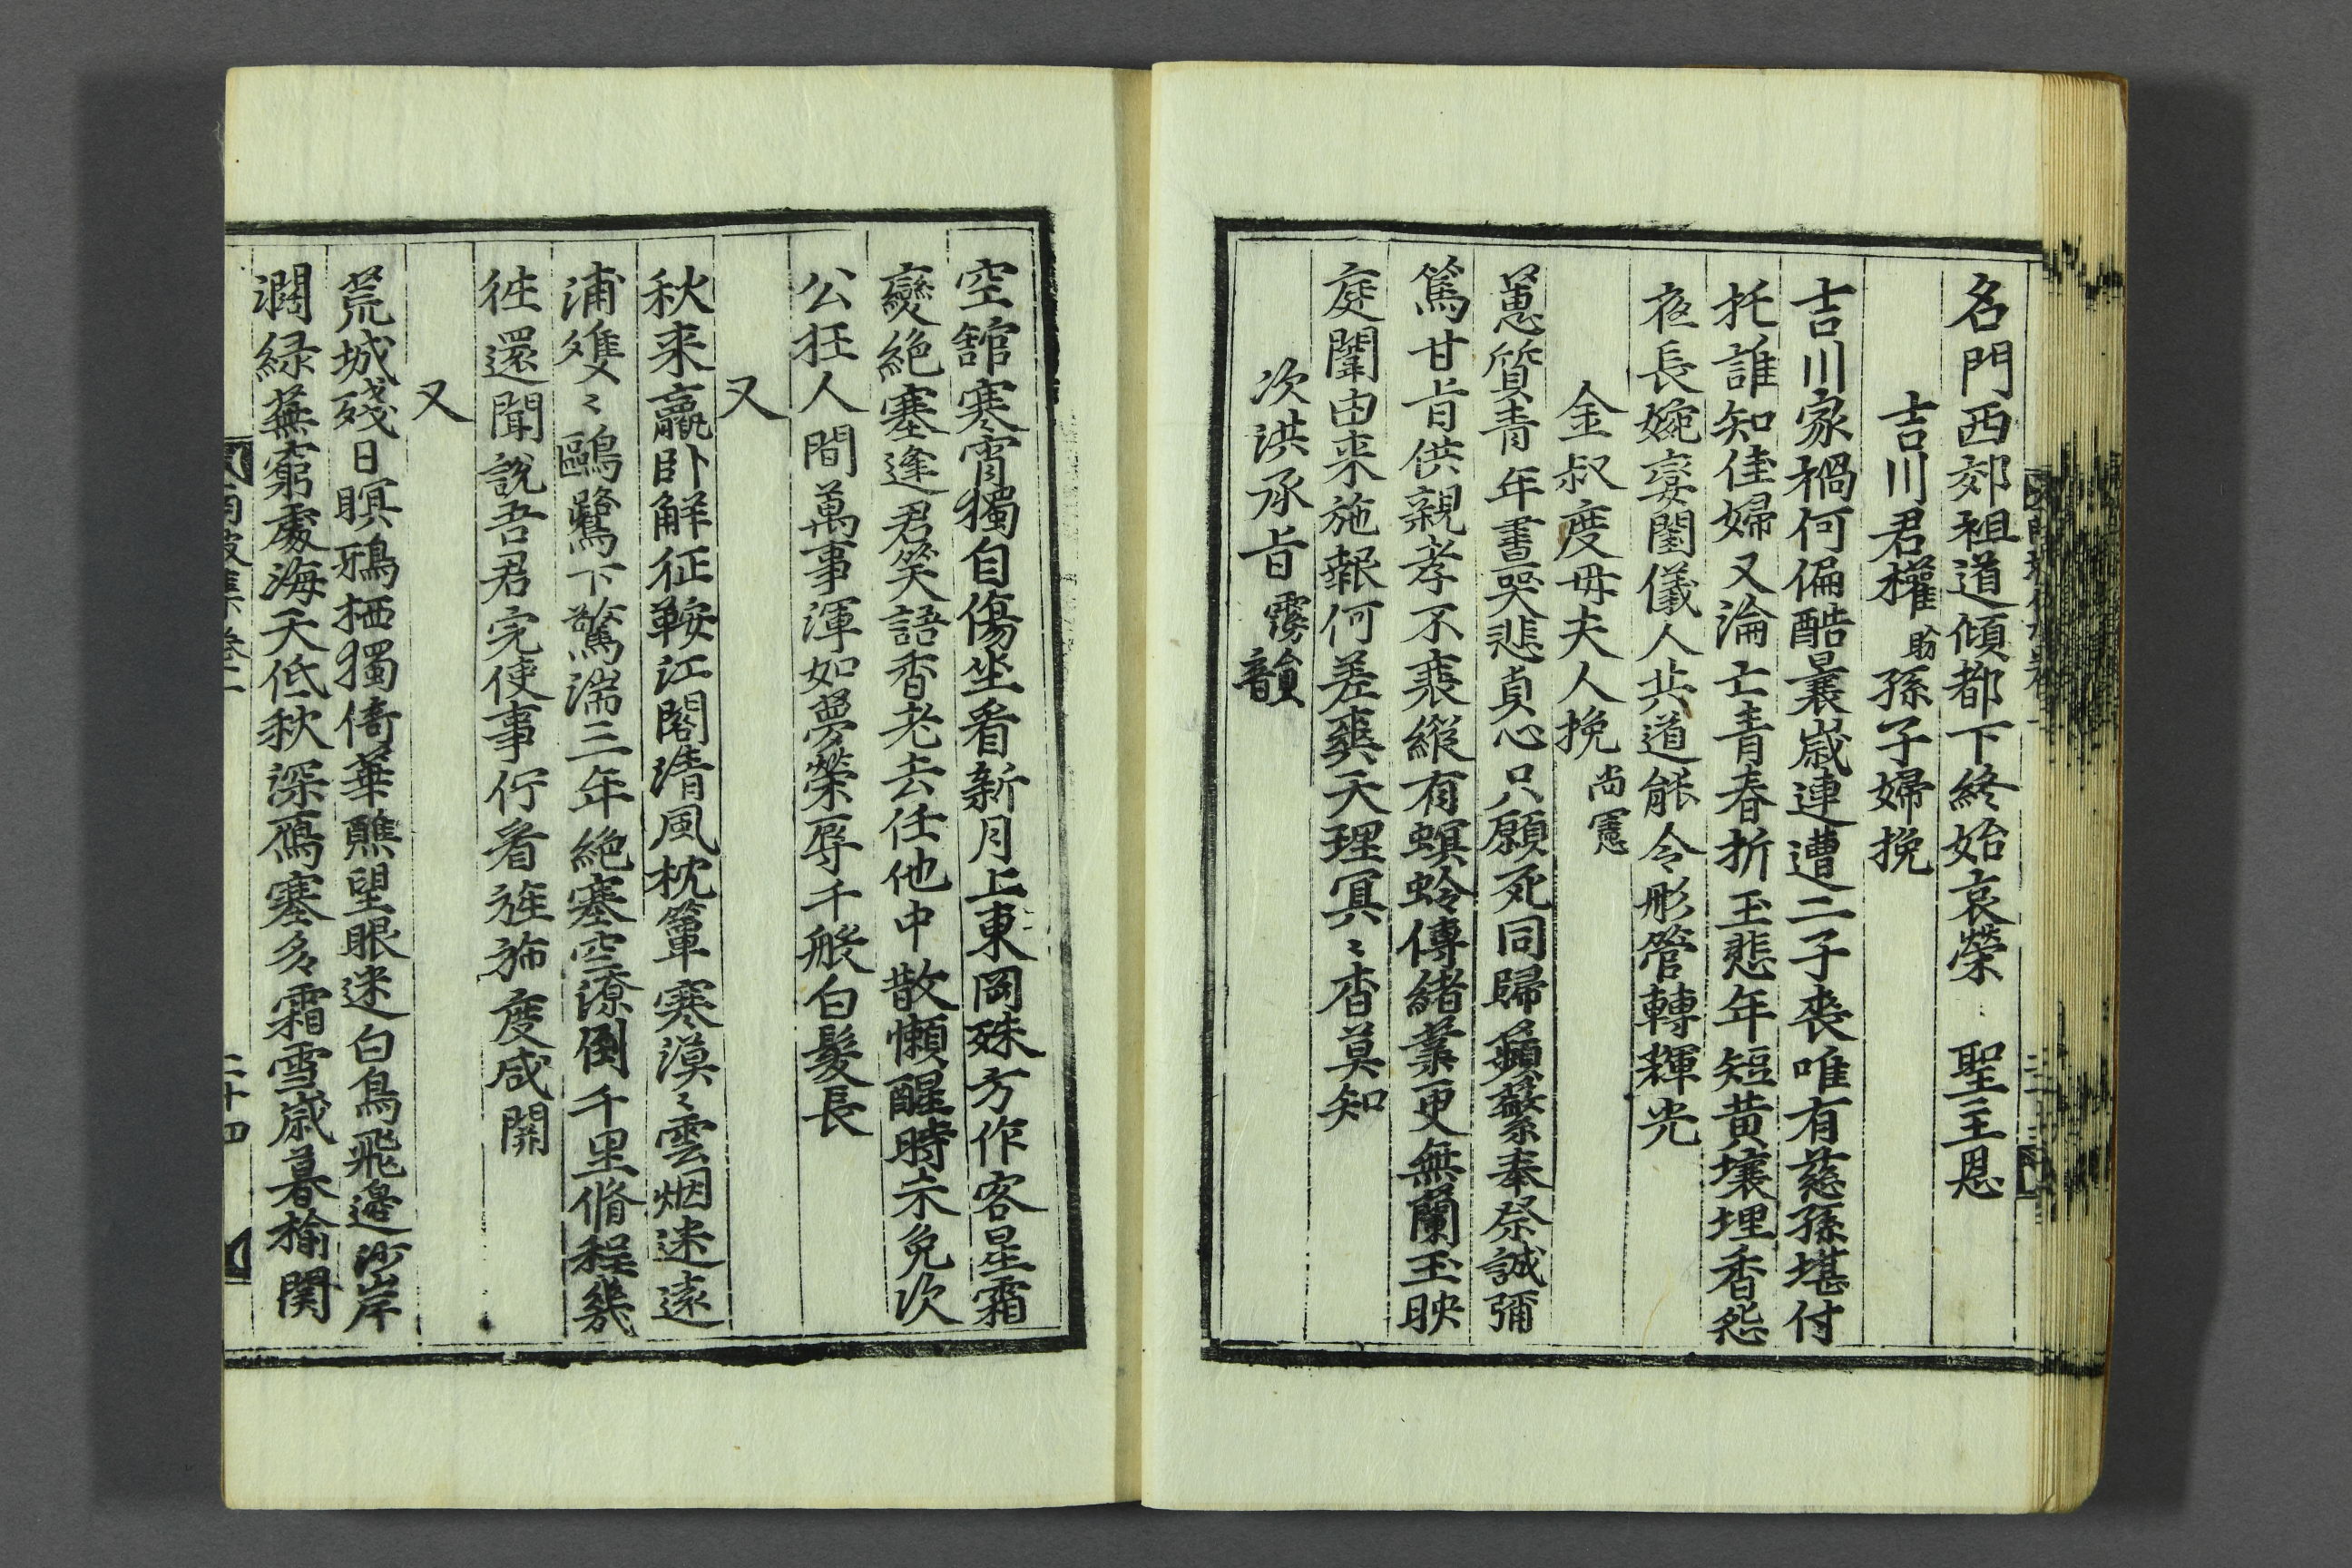 名門西郊祖道傾都下終始哀榮 聖主恩
吉川君權盼孫子婦挽
吉川家禍何偏酷曩歲連遭二子喪唯有慈孫堪付
托誰知佳婦又淪亡青春折玉悲年短黃壤埋香怨
夜長婉孌閨儀人共道能令彤管轉輝光
金叔度毋夫人挽尚憲
蕙質青年晝哭悲貞心只願死同歸蘋蘩奉祭誠彌
篤甘旨供親孝不衰縱有螟蛉傳緖業更無蘭玉映
庭闈由来施報何差爽天理冥〻杳莫知
次洪承旨霶韻
空舘寒宵獨自傷坐看新月上東岡殊方作客星霜
變絶塞逢君笑語香老去任他中散懶醒時未免次
公狂人間萬事渾如夢榮辱千般白髮長
又
秋来羸卧解征鞍江閣淸風枕簟寒漠〻雲烟迷遠
浦雙〻鷗鷺下驚湍三年絶塞空潦倒千里脩程幾
徃還聞說吾君完使事佇看旌斾度咸關
又
荒城殘日暝鴉栖獨倚華譙望眼迷白鳥飛邊沙岸
濶綠蕪窮處海天低秋深鴈塞多霜雪歲暮楡関
二十四